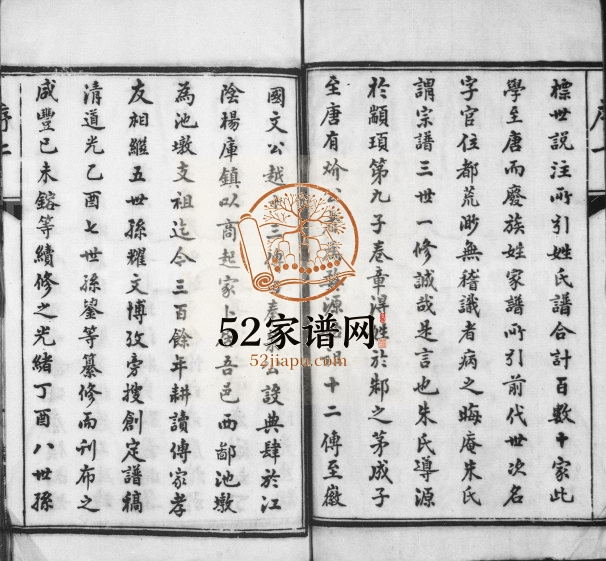 標世說注所引姓氏譜合計百數十家此
學至唐而廢族姓家譜所引前代世次名
字官位都荒渺無稽識者病之晦庵朱氏
謂宗譜三世一修誠哉是言也朱氏導源
於顓頊第九子卷章得姓於邾之茅成子
至唐有
十二傳至徽
國文公越
公設典肆於江
陰楊庫鎮以商起家卜
吾邑西鄙池墩
為池墩支祖迄今三百餘年耕讀傳家孝
友相繼五世孫耀文博攷旁搜創定譜稿
清道光乙酉七世孫鋆等纂修而刊布之
咸豐己未鎔等續修之光緒丁酉八世孫
52家谱网
52jiapu.com